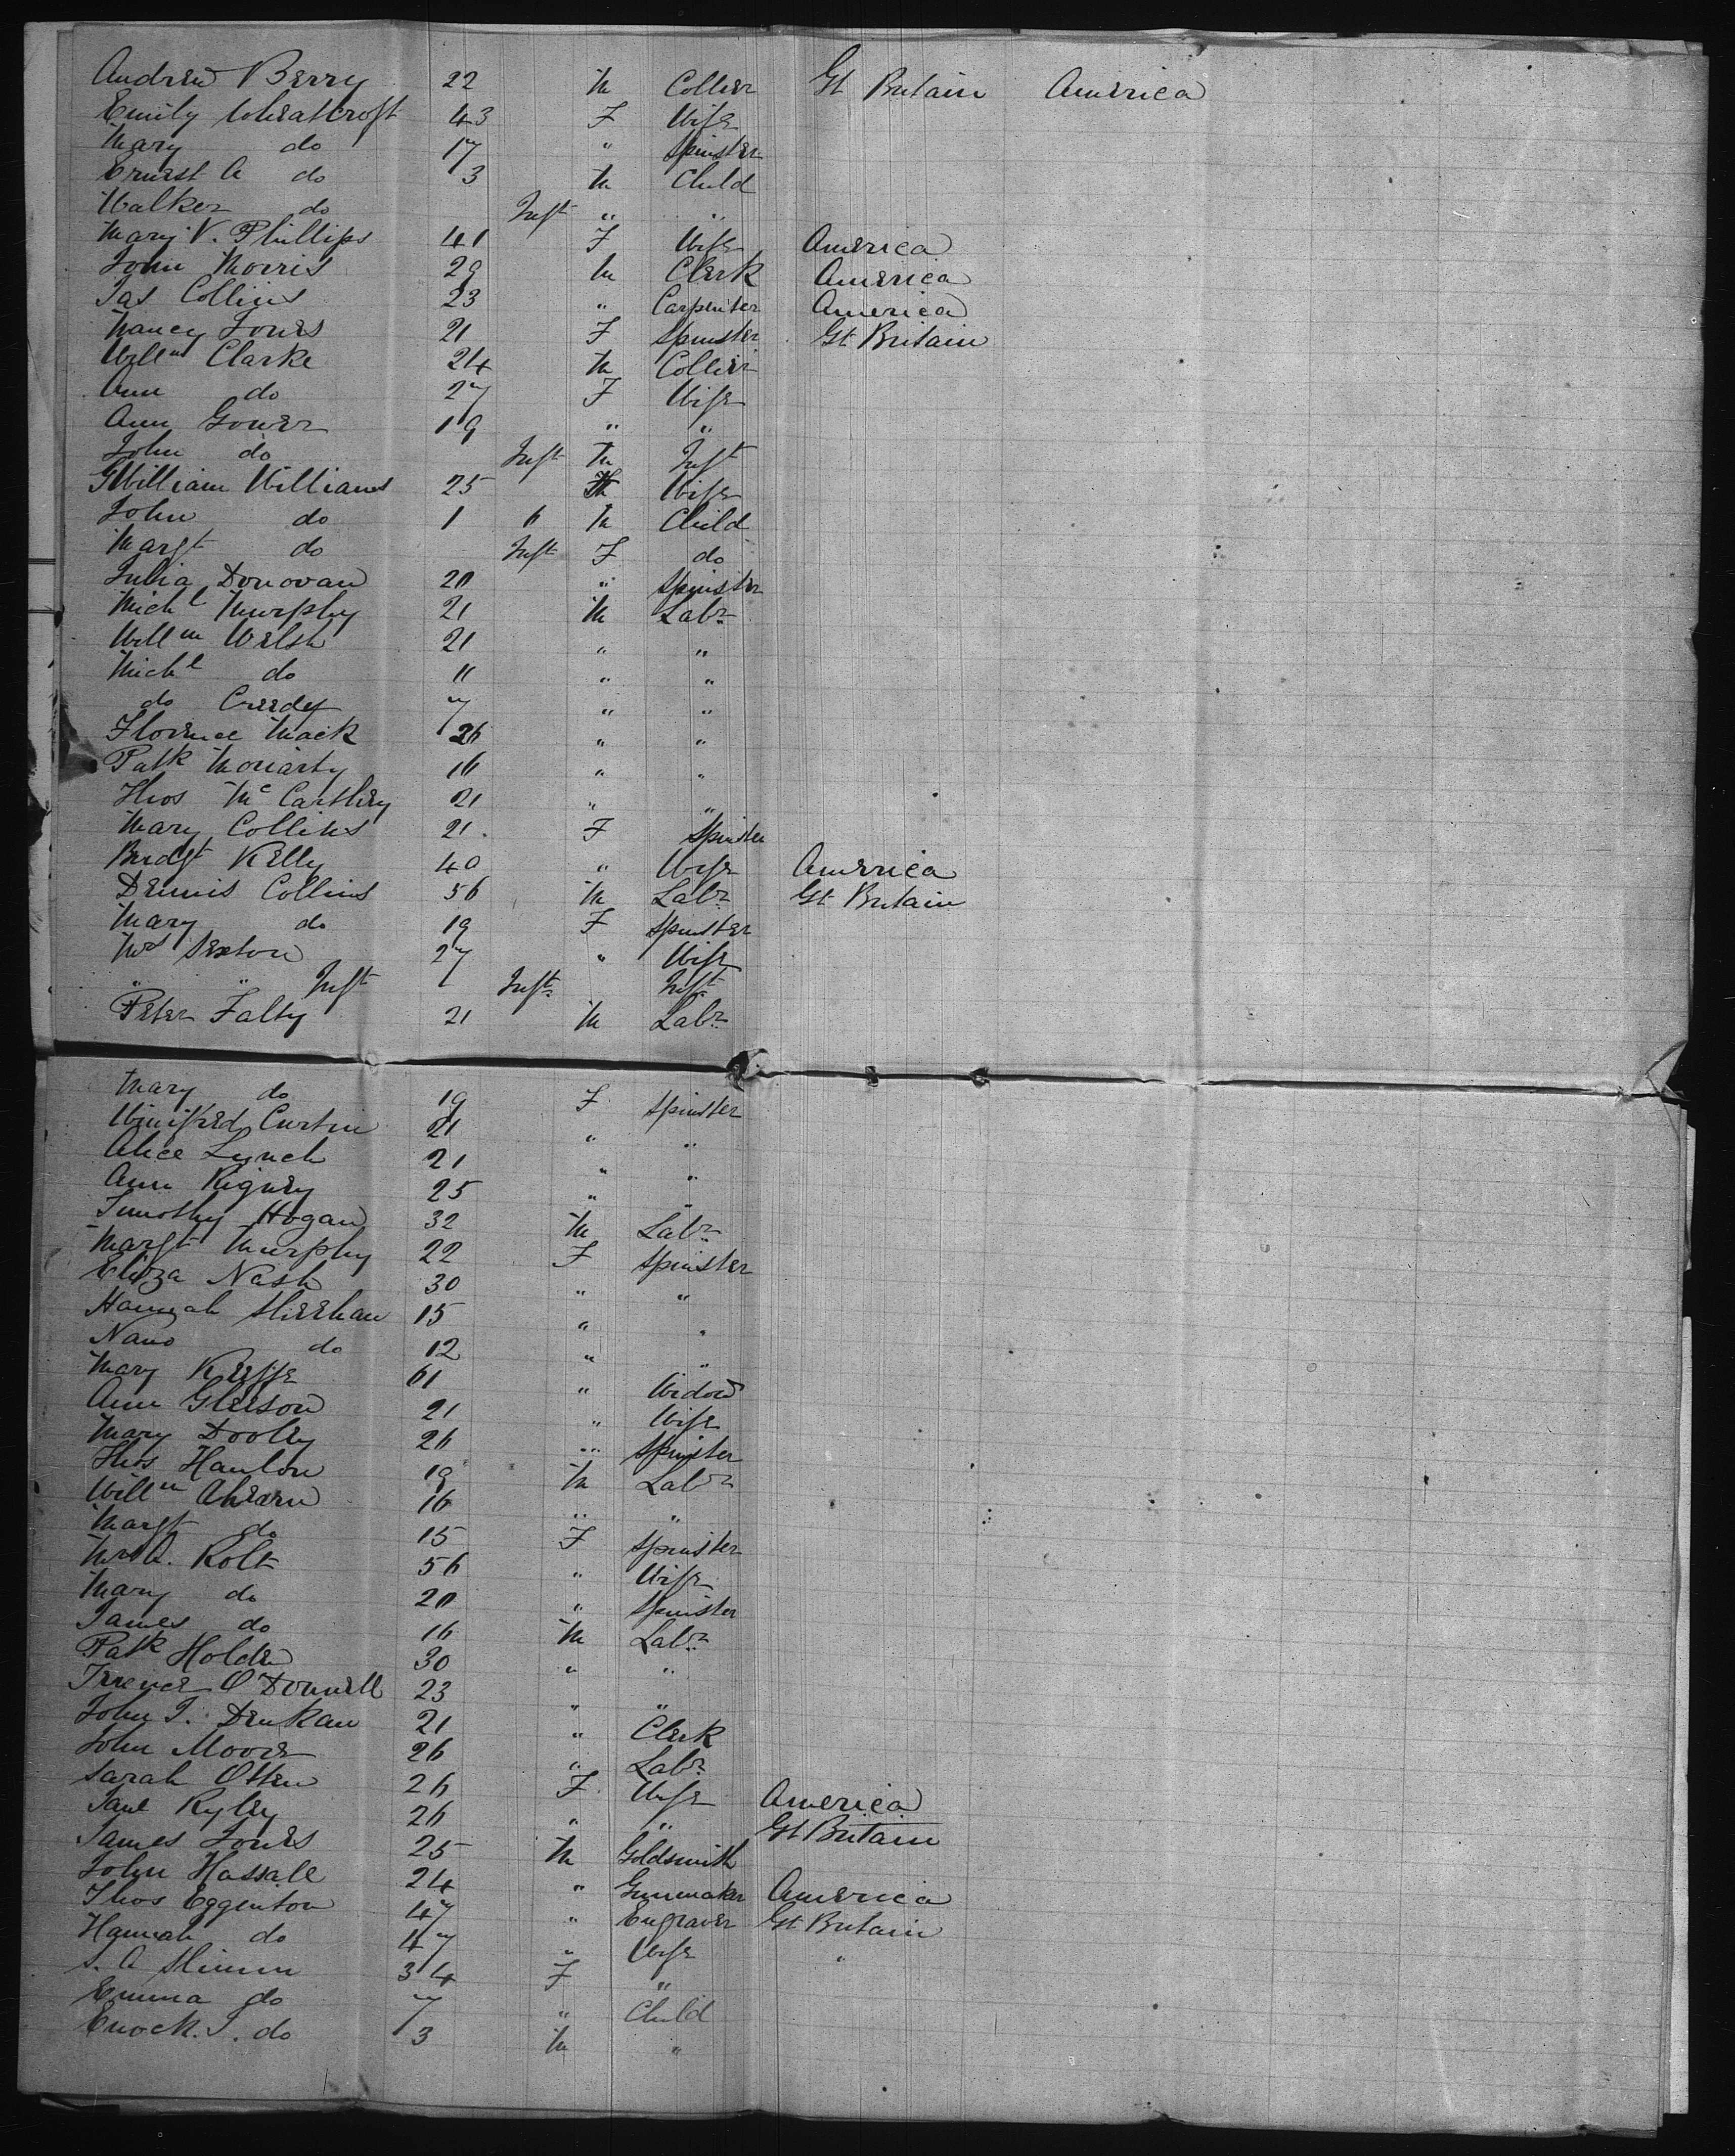 Andrew Berry 22 M Collier Gt Britain America
Emily Wheatcroft 43 F Wife
Mary do 17 " Spinster
Ernest A do 3 M Child
Walker do Inft " "
Mary V. Phillips 41 F Wife America
John Morris 29 M Clerk America
Jas Collins 23 " Carpenter America
Nancy Jones 21 F Spinster Gt Britain
Willm Clarke 24 M Collier
Ann do 27 F Wife
Ann Gower 19 " "
John do Inft M Inft
GWilliam Williams 25 Wife
John do 1 6 M Child
Margt do Inft F do
Julia Donovan 20 " Spinster
Michl Murphy 21 M Labr
Willm Welsh 21 " "
Michl do 11 " "
do Creedy 7 " "
Florence Mack 26 " "
Patk Moriarty 16 " "
Thos McCarthey 21 " "
Mary Collins 21 F Spinster
Bridgt Kelly 40 " Wife America
Dennis Collins 56 M Labr Gt Britain
Mary do 19 F Spinster
Mrs Sexton 27 " Wife
" " Inft Inft Inft
Peter Falty 21 M Labr
Mary do 19 F Spinster
Winifred Curtin 21 " "
Alice Lynch 21 " "
Ann Rigney 25 " "
Timothy Hogan 32 M Labr
Margt Murphy 22 F Spinster
Eliza Nash 30 " "
Hannah Sheehan 15 " "
Nano do 12 " "
Mary Keeffe 61 " Widow
Ann Gleeson 21 " Wife
Mary Dooley 26 " Spinster
Thos Hanlon 19 M Labr
Willm Ahearn 16 " "
Margt do 15 F Spinster
Mrs A. Rolt 56 " Wife
Mary do 20 " Spinster
James do 16 M Labr
Patk Holden 30 " "
Terence O'Donnell 23 " "
John J. Denkan 21 " Clerk
John Moore 26 " Labr
Sarah Otten 26 F Wife America
Jane Ryley 26 " " Gt Britain
James Jones 25 M Goldsmith
John Hassall 24 " Gunmaker America
Thos Eggenton 47 " Engraver Gt Britain
Hannah do 47 " Wife "
S. A Slimm 34 F "
Emma do 7 " Child
Enock. J. do 3 M "